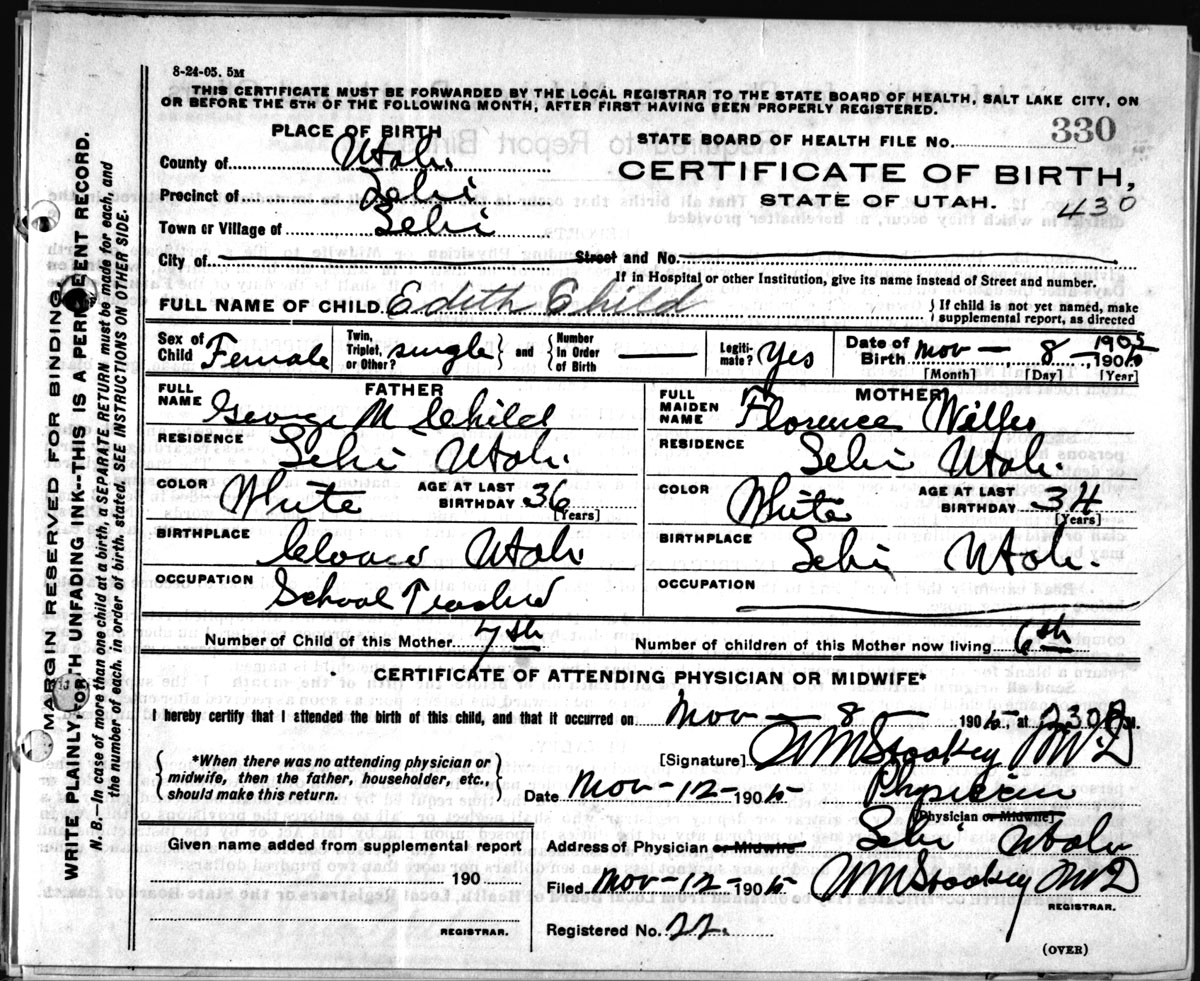 8-24-05. 5M
THIS CERTIFICATE MUST BE FORWARDED BY THE LOCAL REGISTRAR TO THE STATE BOARD OF HEALTH, SALT LAKE CITY, ON
OR BEFORE THE 5TH OF THE FOLLOWING MONTH, AFTER FIRST HAVING BEEN PROPERLY REGISTERED.
PLACE OF BIRTH
County of Utah.
Precinct of Lehi
Town or Village of Lehi
STATE BOARD OF HEALTH FILE No. 330
CERTIFICATE OF BIRTH,
STATE OF UTAH. 430
City of Street and No.
If in Hospital or other Institution, give its name instead of Street and number.
FULL NAME OF CHILD Edith Child } If child is not yet named, make supplemental report, as directed
Sex of Child Female Twin, Triplet, or Other? single } and { Number in Order of Birth Legitimate? Yes Date of Birth Nov — 8 — 1905
190
[Month] [Day] [Year]
FATHER
FULL NAME George M Child
RESIDENCE Lehi Utah.
COLOR White AGE AT LAST BIRTHDAY 36 [Years]
BIRTHPLACE Utah
OCCUPATION School Teacher
MOTHER
FULL MAIDEN NAME Florence
RESIDENCE Lehi Utah.
COLOR White AGE AT LAST BIRTHDAY 34 [Years]
BIRTHPLACE Lehi Utah.
OCCUPATION
Number of Child of this Mother 7th Number of children of this Mother now living 6th
CERTIFICATE OF ATTENDING PHYSICIAN OR MIDWIFE*
I hereby certify that I attended the birth of this child, and that it occurred on Nov — 8 — 1905, at 230 M.
{ *When there was no attending physician or midwife, then the father, householder, etc., should make this return. }
[Signature] M.D
Date Nov-12-1905 Physician
[Physician or Midwife]
Given name added from supplemental report
190
REGISTRAR.
Address of Physician or Midwife Lehi Utah
Filed Nov-12-1905 M.D
REGISTRAR.
Registered No. 22.
(OVER)
MARGIN RESERVED FOR BINDING.
WRITE PLAINLY, WITH UNFADING INK--THIS IS A PERMANENT RECORD.
N. B. In case of more than one child at a birth, a SEPARATE RETURN must be made for each, and
the number of each, in order of birth, stated. SEE INSTRUCTIONS ON OTHER SIDE.